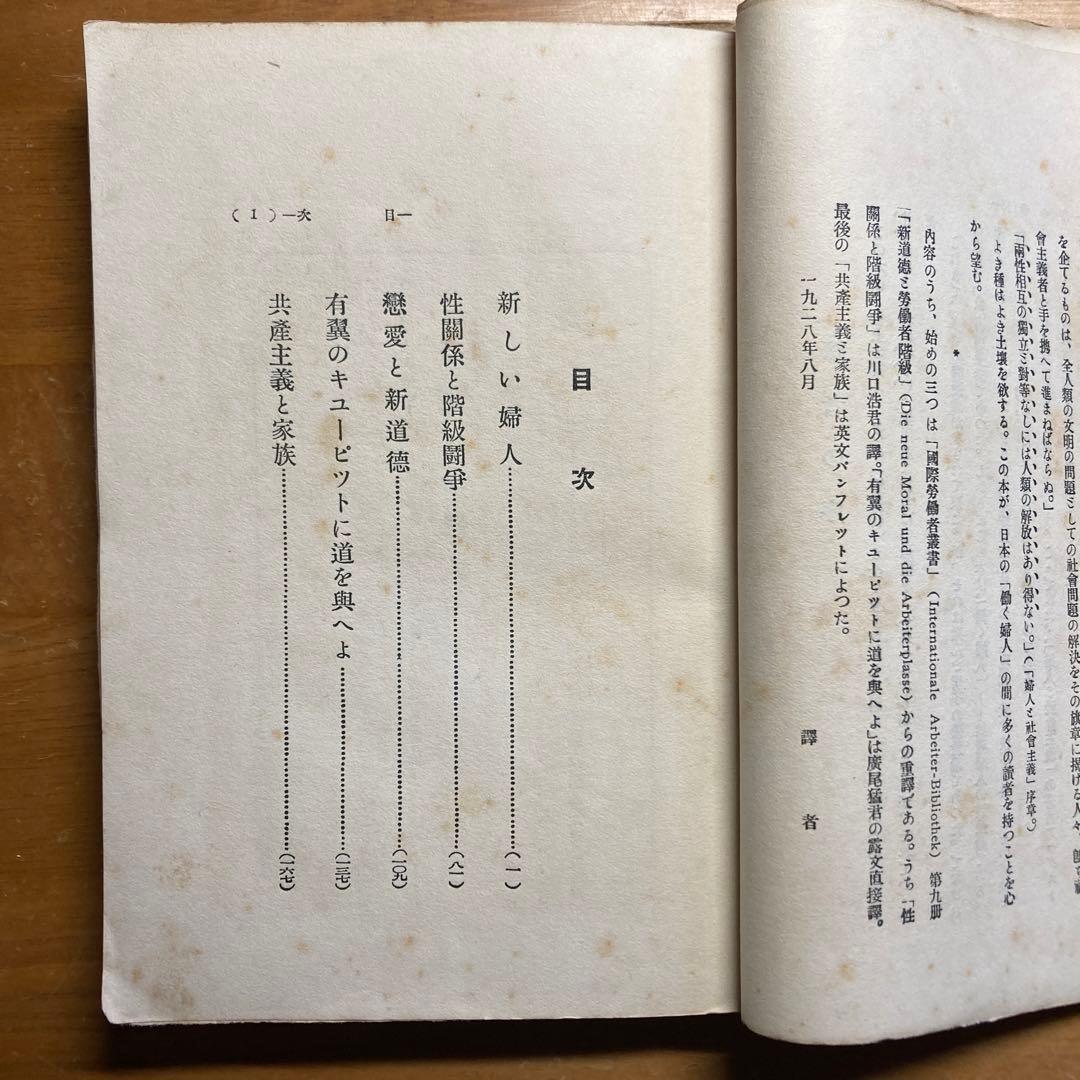 を企てるものは、全人類の文明の問題としての社會問題の解決をその旗章に掲げる人々
會主義者と手を携へて進まねばならぬ。」
「兩性相互の獨立と對等なしには人類の解放はあり得ない。」(「婦人と社會主義」序章。)
よき種はよき土壤を欲する。この本が、日本の「働く婦人」の間に多くの讀者を持つことを心
から望む。
*
内容のうち、始めの三つは「國際勞働者叢書」(Internationale Arbeiter-Bibliothek) 第九册
「新道德と勞働者階級」(Die neue Moral und die Arbeiterplasse) からの重譯である。うち「性
關係と階級鬪爭」は川口浩君の譯。「有翼のキューピットに道を與へよ」は廣尾猛君の露文直接譯。
最後の「共產主義と家族」は英文パンフレットによつた。
一九二八年八月
譯者
目次
新しい婦人……(一)
性關係と階級鬪爭……(八一)
戀愛と新道德……(一〇九)
有翼のキューピツトに道を與へよ……(一三七)
共產主義と家族……(一六七)
(1)一次 目一